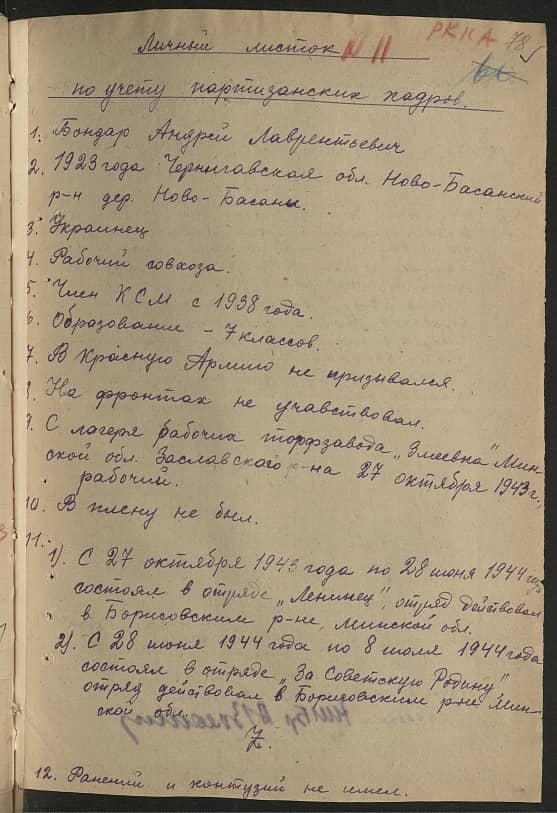 РККА 78
Личный листок № 11
по учету партизанских кадров.
1. Бондар Андрей Лаврентьевич
2. 1923 года Черниговская обл. Ново-Басанский
р-н дер. Ново-Басаны.
3. Украинец
4. Рабочий совхоза.
5. Член КСМ с 1938 года.
6. Образование – 7 классов.
7. В Красную Армию не призывался.
8. На фронтах не учавствовал.
9. С лагеря рабочих торфзавода „Змеевка" Мин-
ской обл. Заславского р-на 27 октября 1943 г.,
рабочий.
10. В плену не был.
11.
1). С 27 октября 1943 года по 28 июня 1944 года
состоял в отряде „Ленинец", отряд действовал
в Борисовским р-не, Минской обл.
2). С 28 июня 1944 года по 8 июля 1944 года
состоял в отряде „За Советскую Родину"
отряд действовал в Борисовским р-не Мин-
ской обл.
12. Ранений и контузий не имел.